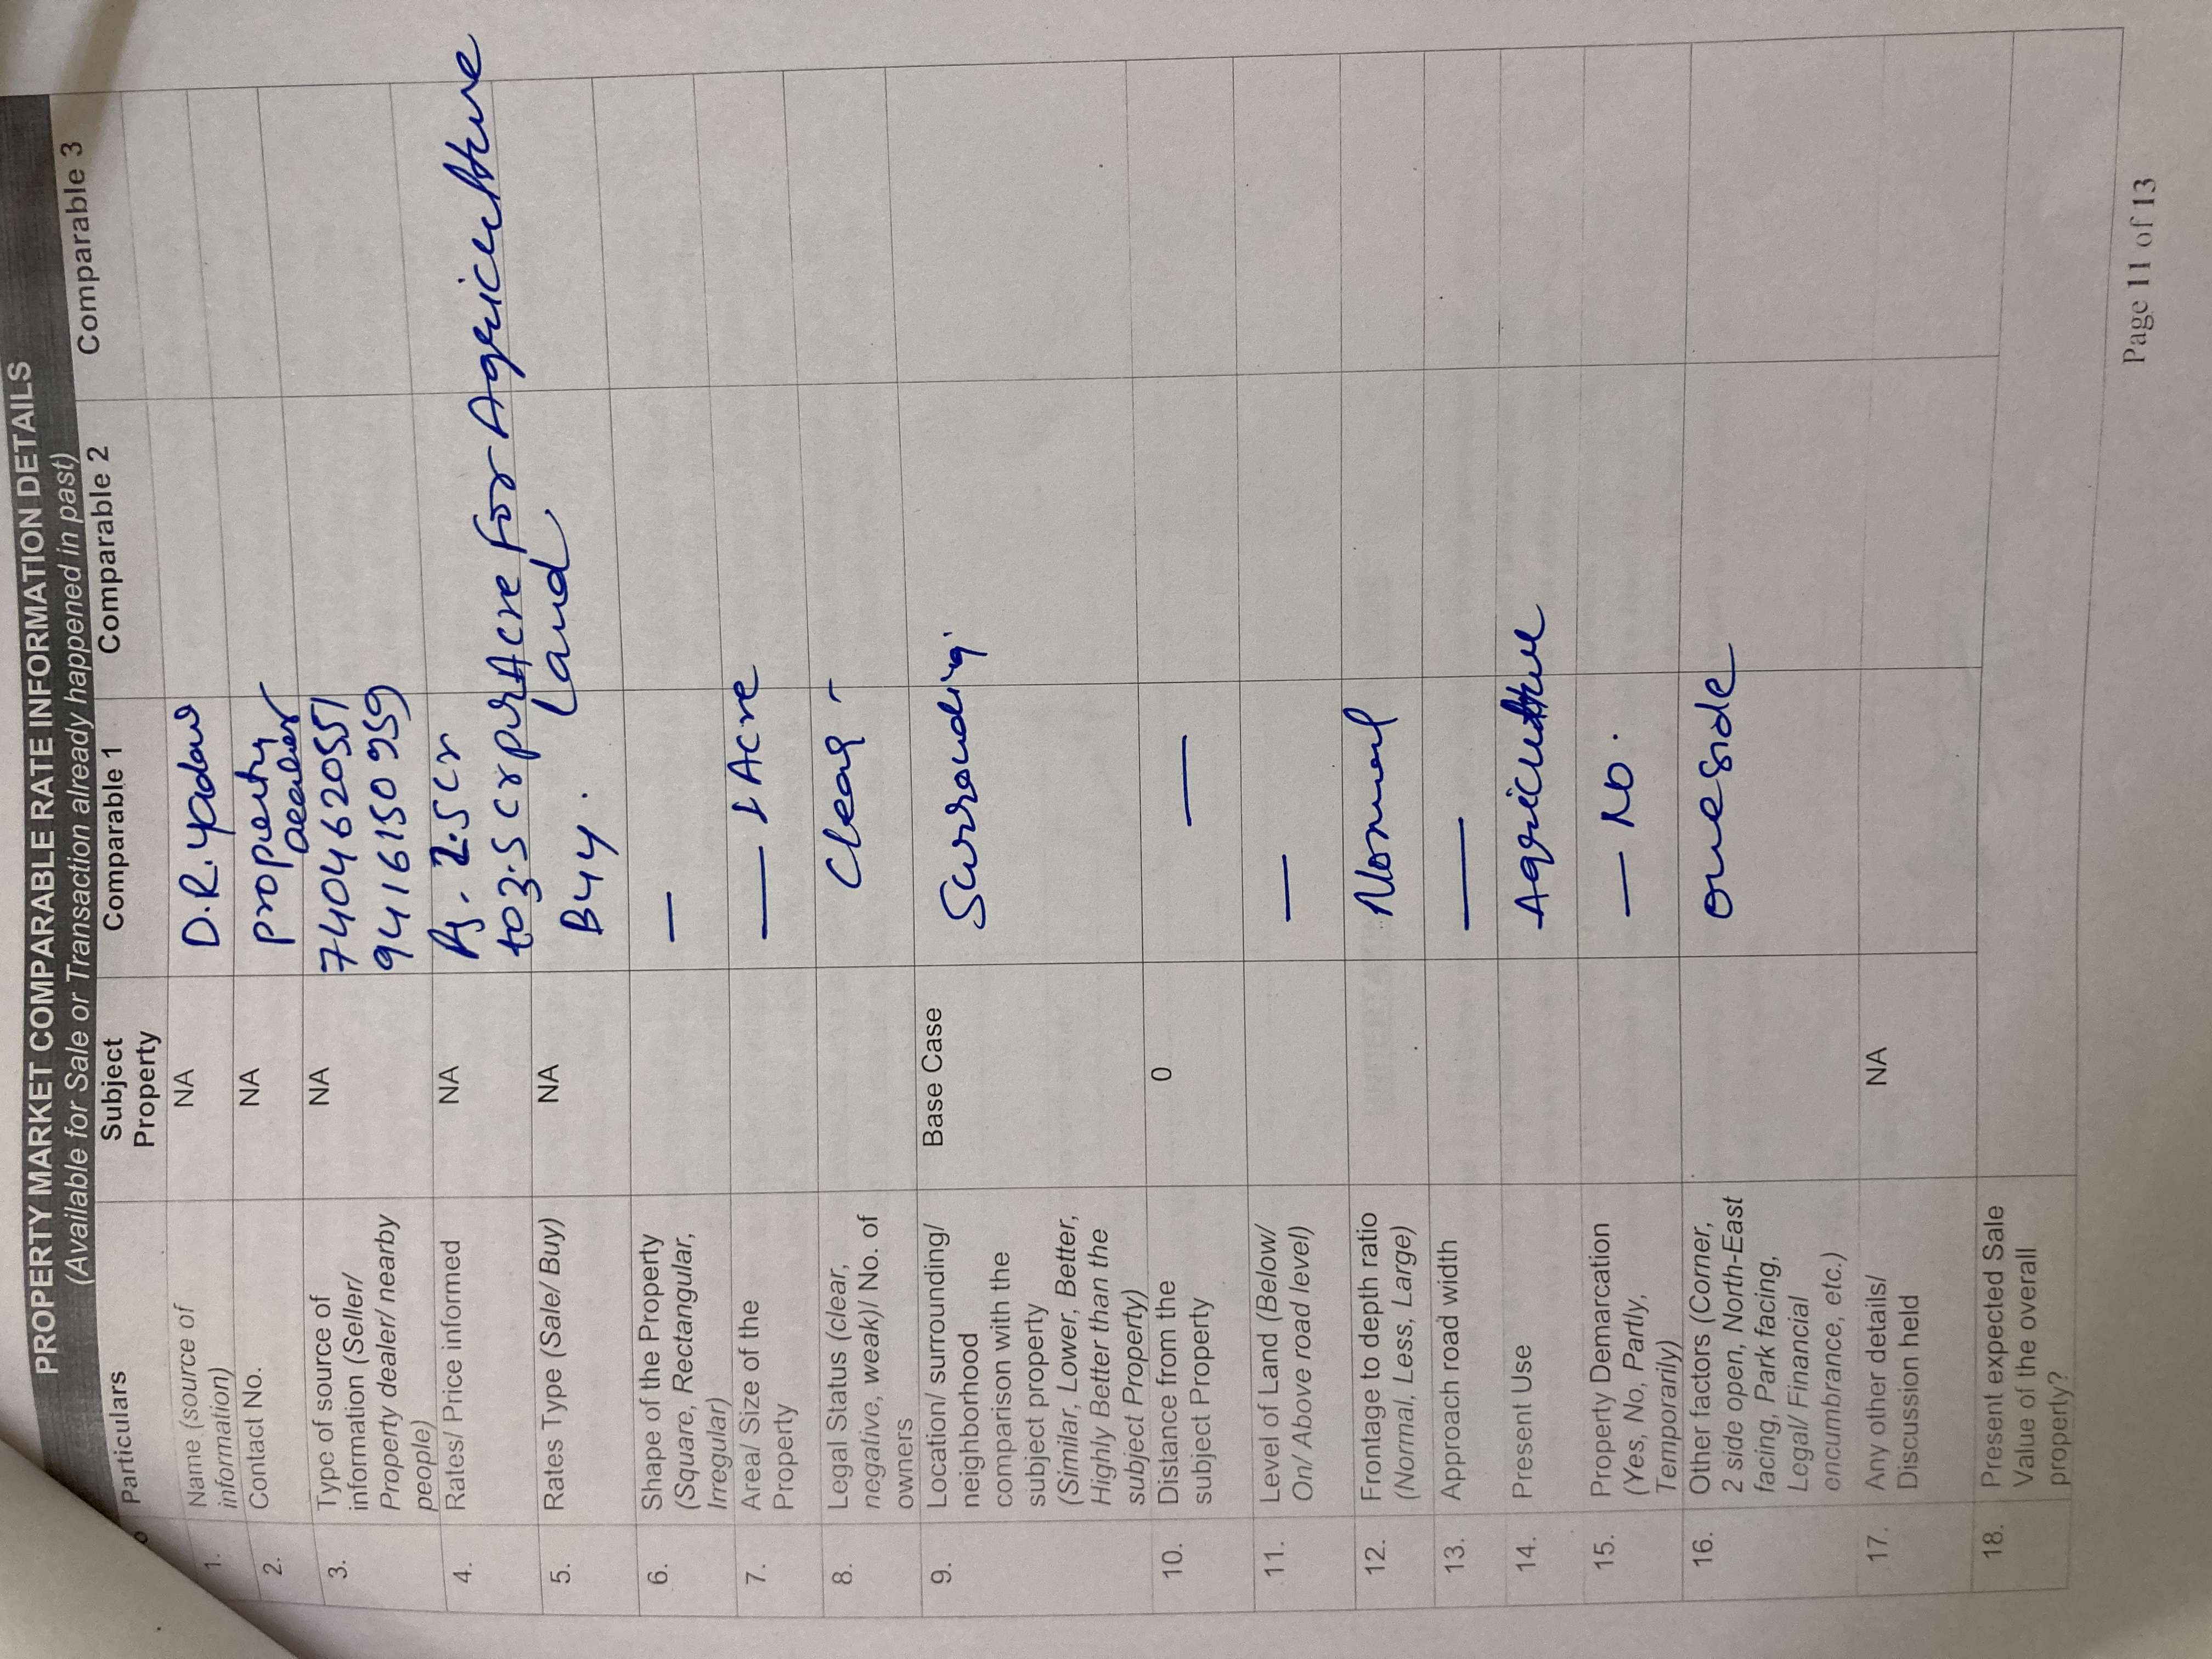 PROPERTY MARKET COMPARABLE RATE INFORMATION DETAILS
(Available for Sale or Transaction already happened in past)
Particulars Subject Property Comparable 1 Comparable 2 Comparable 3
1. Name (source of information) NA D.R. Yadav
2. Contact No. NA property dealer
3. Type of source of information (Seller/ Property dealer/ nearby people) NA 7404620551
9416150959
4. Rates/ Price informed NA Rs. 2.5 cr
to 3.5 cr per Acre For Agriculture
Land
5. Rates Type (Sale/ Buy) NA Buy.
6. Shape of the Property (Square, Rectangular, Irregular) —
7. Area/ Size of the Property — 1 Acre
8. Legal Status (clear, negative, weak)/ No. of owners Clear -
9. Location/ surrounding/ neighborhood comparison with the subject property (Similar, Lower, Better, Highly Better than the subject Property) Base Case Surrounding.
10. Distance from the subject Property 0 —
11. Level of Land (Below/ On/ Above road level) —
12. Frontage to depth ratio (Normal, Less, Large) Normal
13. Approach road width —
14. Present Use Agriculture
15. Property Demarcation (Yes, No, Partly, Temporarily) — No.
16. Other factors (Corner, 2 side open, North-East facing, Park facing, Legal/ Financial encumbrance, etc.) one side
17. Any other details/ Discussion held NA
18. Present expected Sale Value of the overall property?
Page 11 of 13